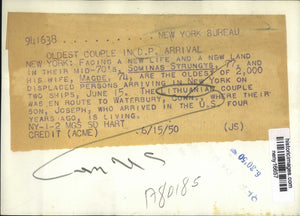 941638 NEW YORK BUREAU
OLDEST COUPLE IN D.P. ARRIVAL
NEW YORK: FACING A NEW LIFE AND A NEW LAND
IN THEIR MID-70'S, SOMINAS SYRUNGTS, 77, AND
HIS WIFE, MAGDE, 74, ARE THE OLDEST OF 2,000
DISPLACED PERSONS ARRIVING IN NEW YORK ON
TWO SHIPS, JUNE 15. THE LITHUANIAN COUPLE
WAS EN ROUTE TO WATERBURY, CONN., WHERE THEIR
SON, JOSEPH, WHO ARRIVED IN THE U.S FOUR
YEARS AGO, IS LIVING.
NY-1-2 MGS SO HART
CREDIT (ACME) 6/15/50 (JS)
A80185
historicimages.com